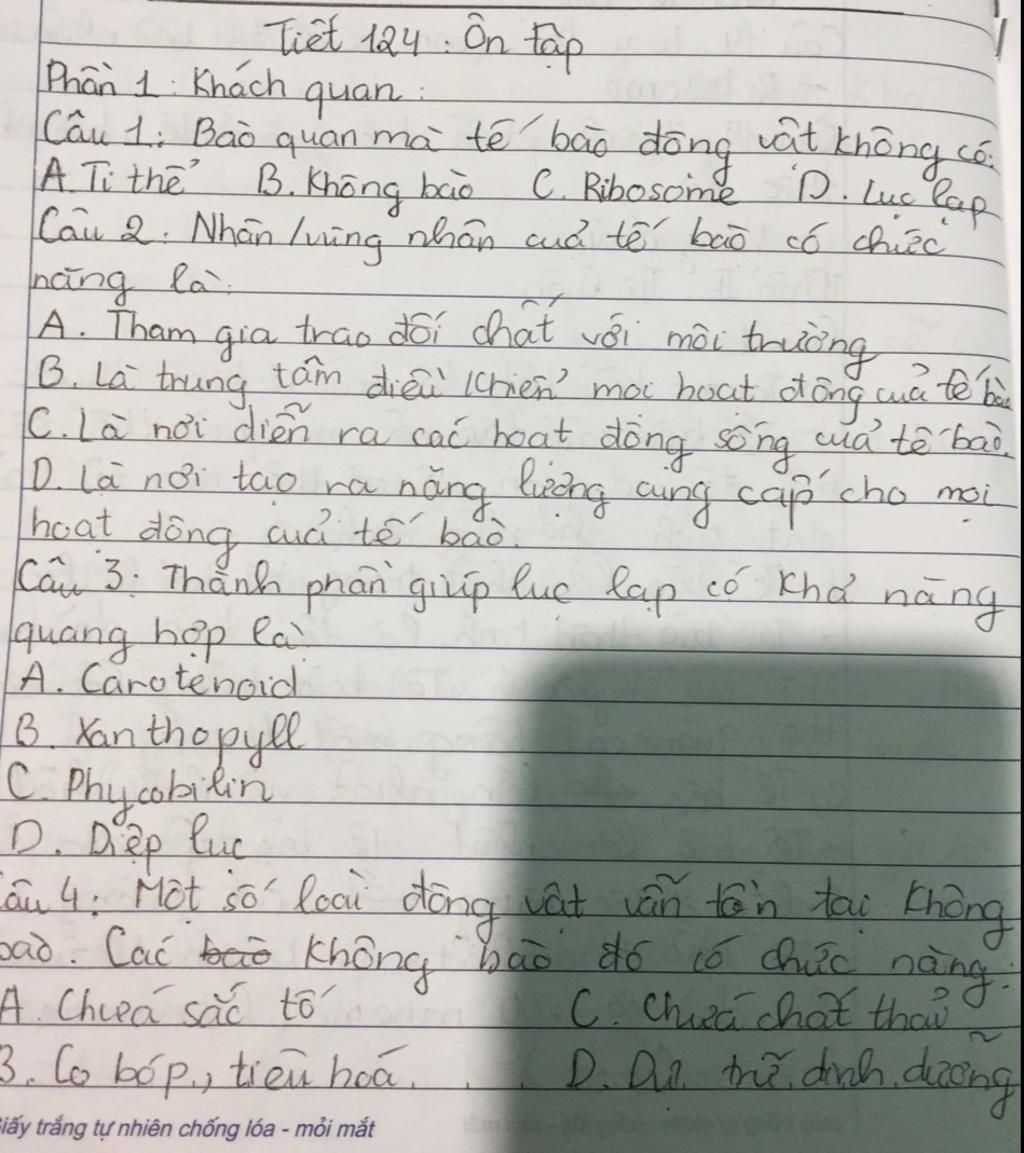 Tiết 124: Ôn tập
Phần 1: Khách quan:
Câu 1: Bào quan mà tế bào động vật không có:
A. Ti thể B. Không bào C. Ribosome D. Lục lạp
Câu 2: Nhân/vùng nhân của tế bào có chức
năng là:
A. Tham gia trao đổi chất với môi trường
B. Là trung tâm điều khiển mọi hoạt động của tế bào
C. Là nơi diễn ra các hoạt động sống của tế bào.
D. Là nơi tạo ra năng lượng cung cấp cho mọi
hoạt động của tế bào.
Câu 3: Thành phần giúp lục lạp có khả năng
quang hợp là:
A. Carotenoid
B. Xanthopyll
C. Phycobilin
D. Diệp lục
Câu 4: Một số loài động vật vẫn tồn tại không
bào. Các bào không bào đó có chức năng:
A. Chứa sắc tố C. Chứa chất thải
B. Co bóp, tiêu hoá. D. Dự trữ dinh dưỡng
Giấy trắng tự nhiên chống lóa - mỏi mắt